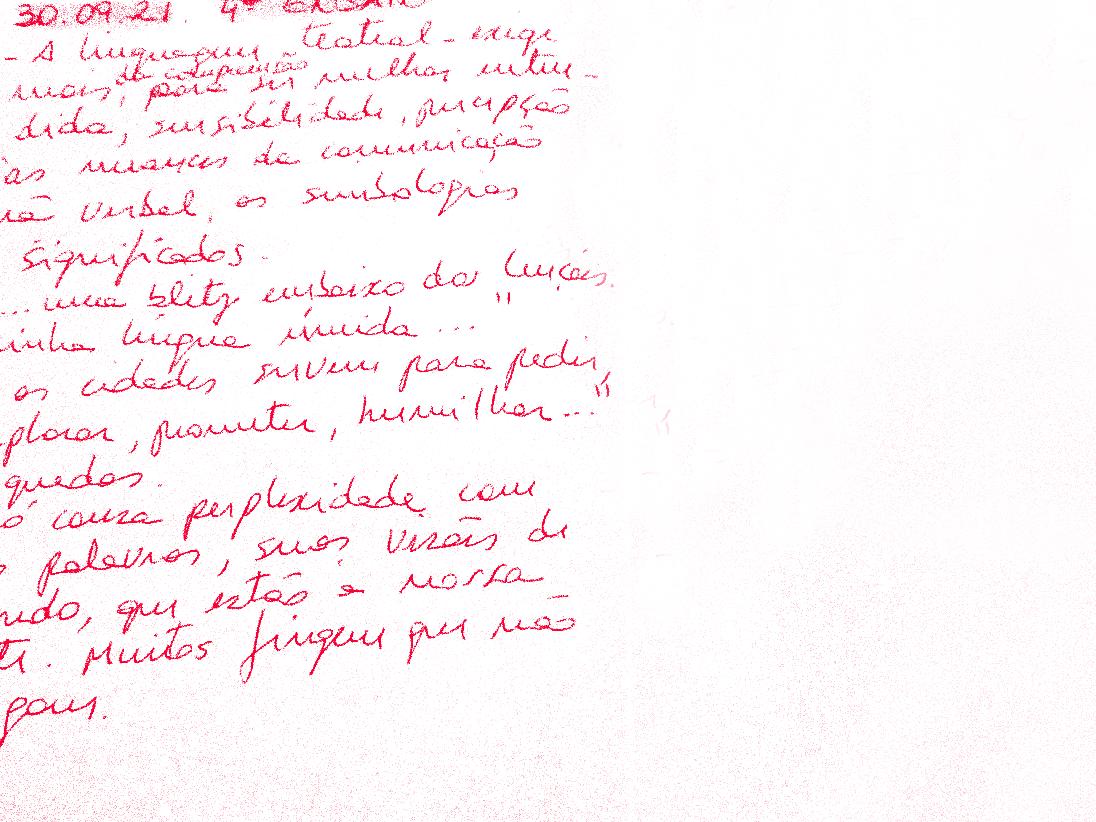 30.09.21. 4º ENSAIO
- A linguagem - teatral - exige
da compreensão
mais, para ser melhor enten-
dida, sensibilidade, percepção
as nuances da comunicação
verbal, as simbologias
significados.
... uma blitz embaixo dos lençóis.
inha língua úmida ..."
as cidades servem para pedir,
plorar, prometer, humilhar..."
quedas.
ó causa perplexidade com
palavras, suas visões de
ndo, que estão à nossa
te. Muitos fingem que não
gam.